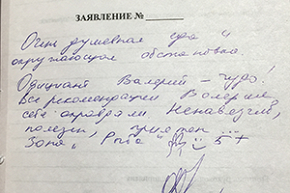 ЗАЯВЛЕНИЕ №
Очень душевная еда и
окружающая обстановка.
Официант Валерий – чудо!
Все рекомендации Валерия
себя оправдали. Ненавязчив,
полезен, приятен ...
Зона „ 5+